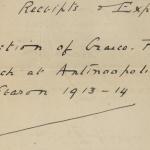 Receipts & Exp
ction of Graeco-
at Antinoopoli
Season 1913-14